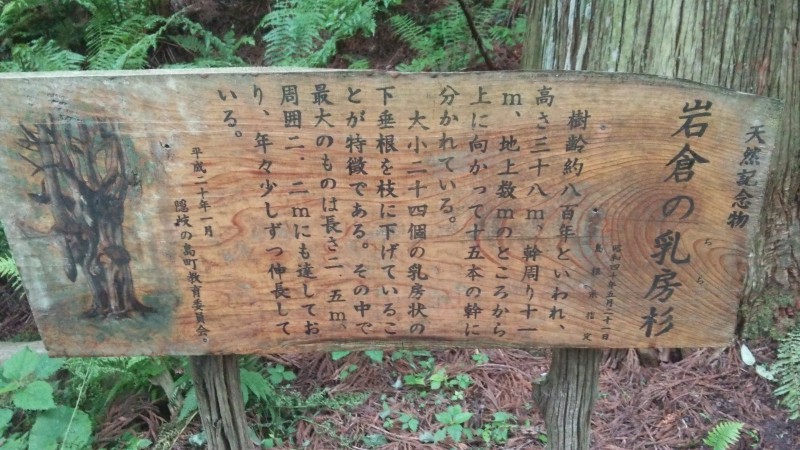 天然記念物
岩倉の乳房杉
ちち
昭和四十
月二十一日
指定
樹齢約八百年といわれ、
高さ三十八m、幹周り十一
m、地上数mのところから
上に向かって十五本の幹に
分かれている。
大小二十四個の乳房状の
下垂根を枝に下げているこ
とが特徴である。その中で
最大のものは長さ二.五m、
周囲二.二mにも達してお
り、年々少しずつ伸長して
いる。
平成二十年一月
隠岐の島町教育委員会。